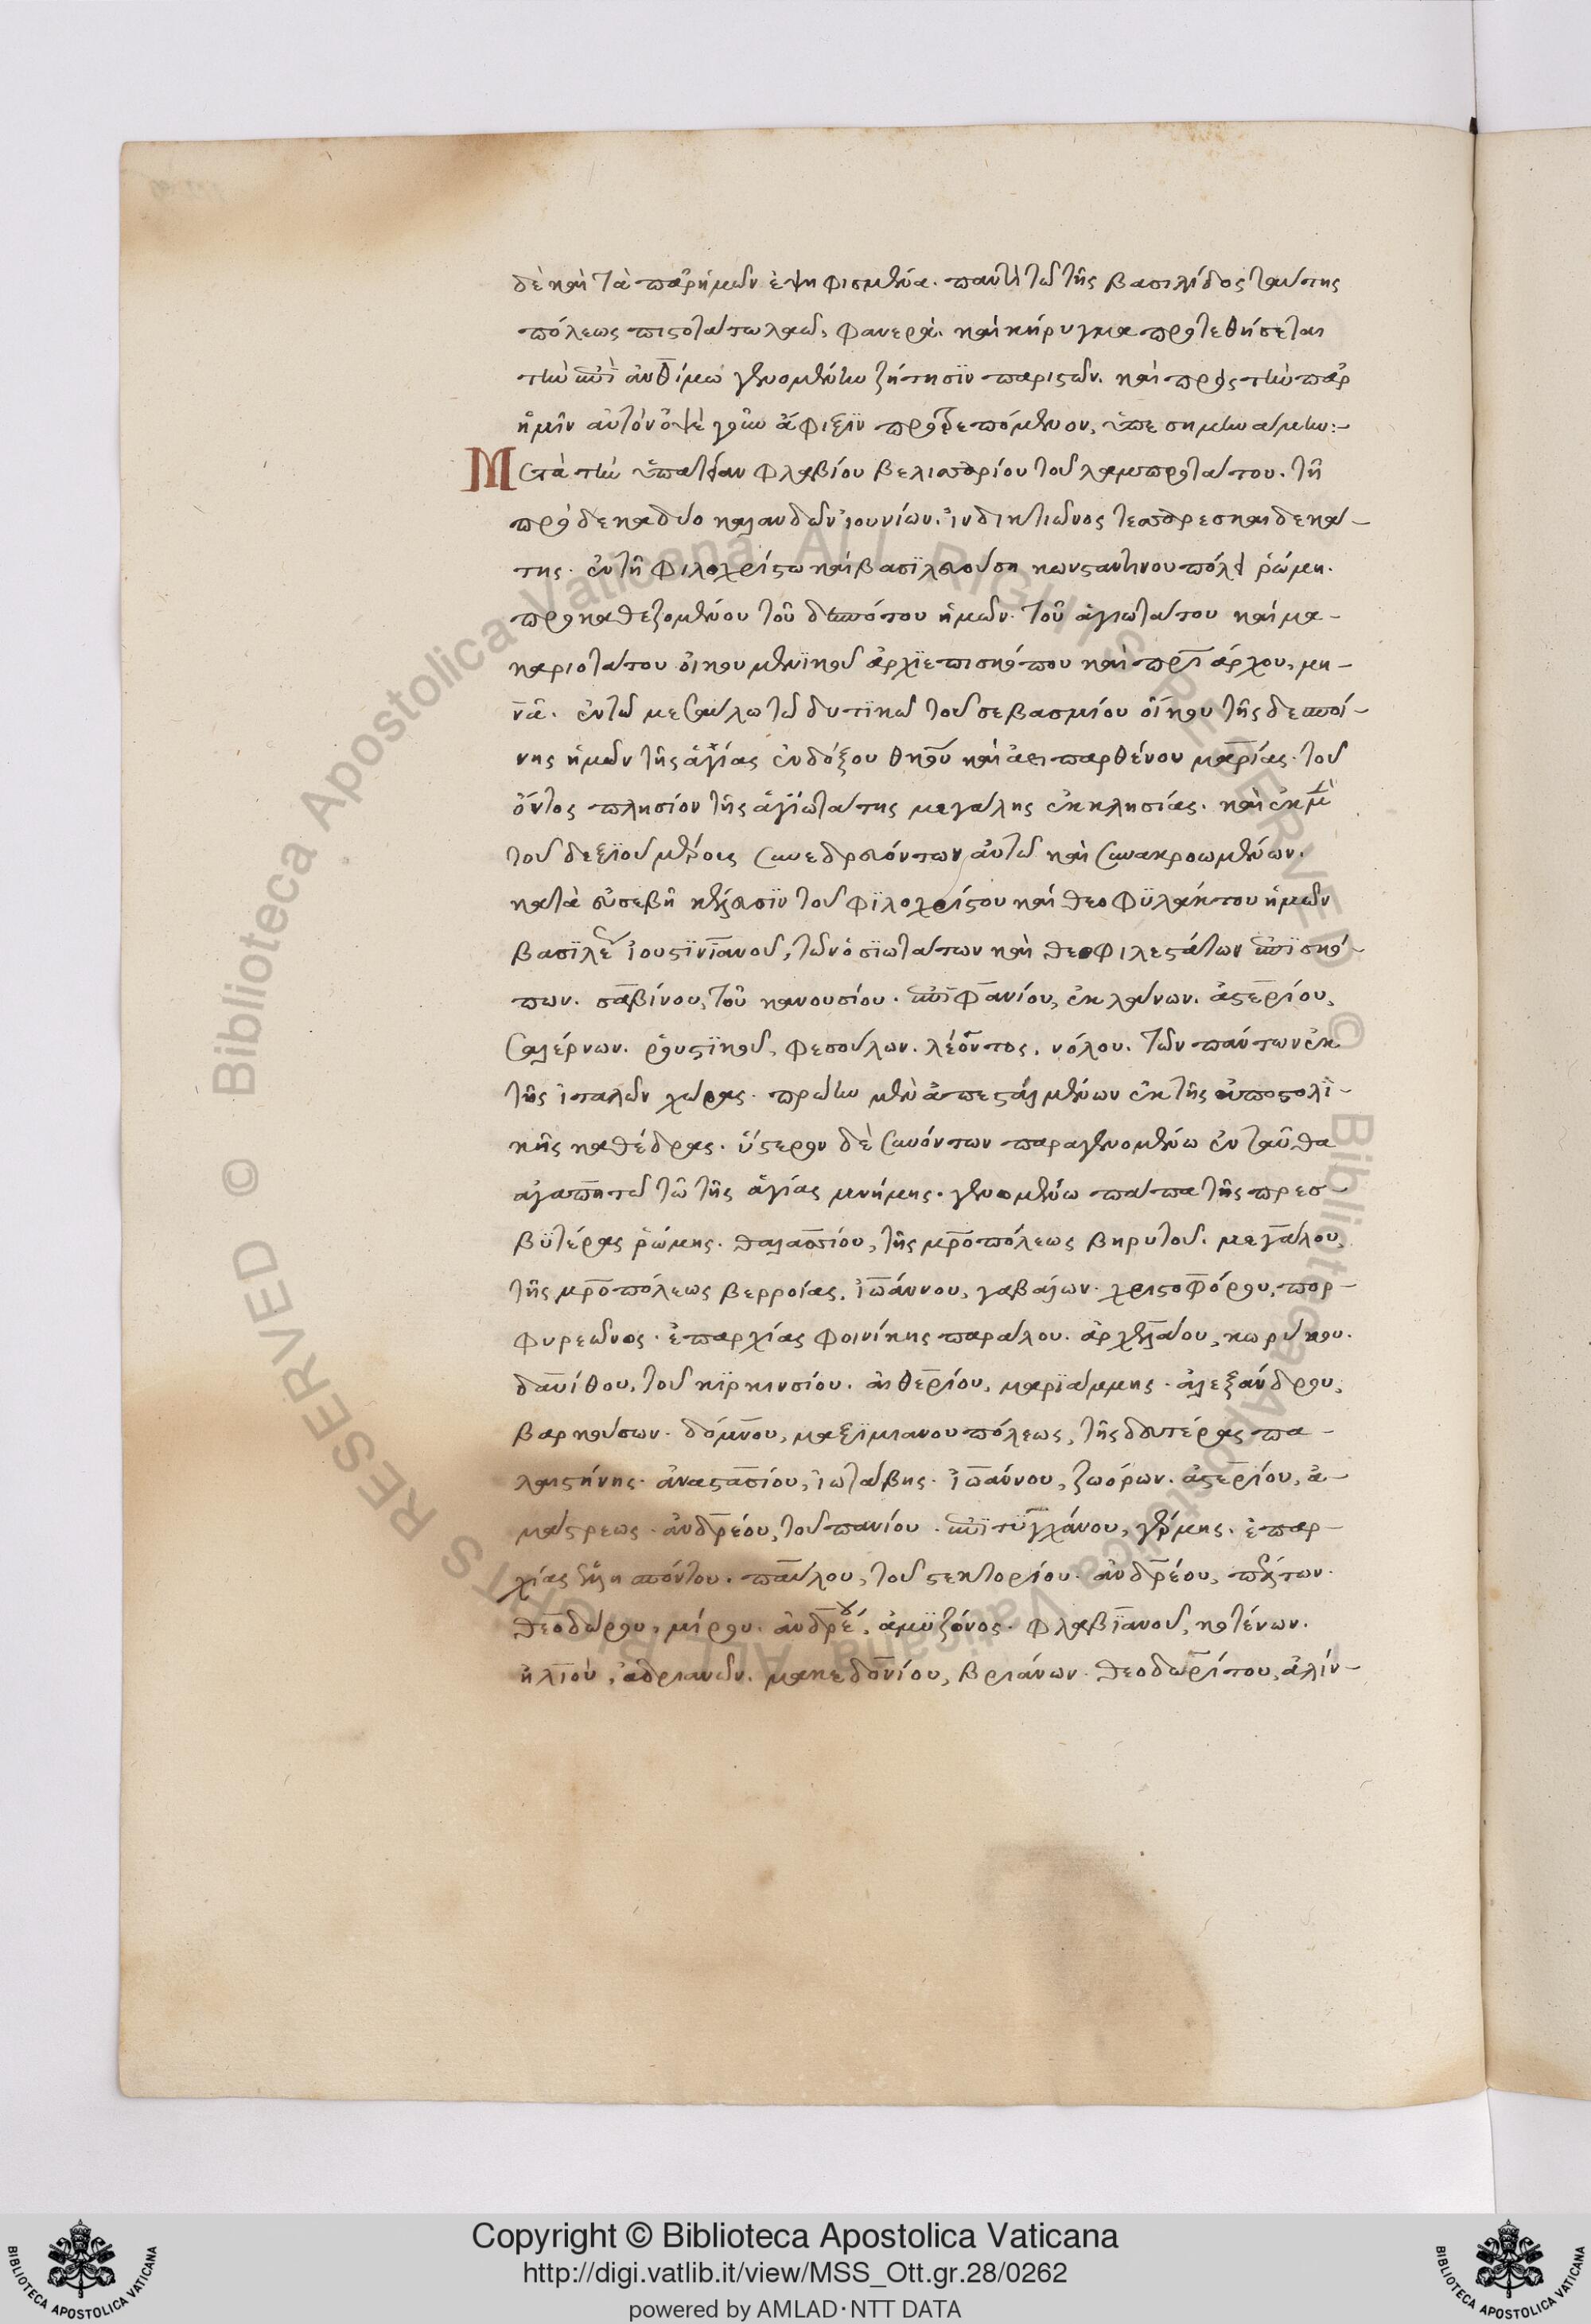 δὲ καὶ τὰ παρ' ἡμῶν ἐψηφισμένα. παντὶ τῶ τῆς βασιλίδος ταύτης
πόλεως πιστοτάτω λαῶ, φανερὰ. καὶ κήρυγμα προτεθήσεται
τὴν ἐπὶ ἀνθίμω γενομένην ζήτησϊν παριστῶν. καὶ πρὸς τὴν παρ'
ἡμῖν αὐτὸν ὀψὲ ἄφιξϊν προτρεπόμενον, ὑπεσημηνάμην:-
Μετὰ τὴν ὑπατείαν φλαβίου βελισαρίου τοῦ λαμπροτάτου. τῆ
πρὸ δεκαδύο καλανδῶν ἰουνίων. ἰνδικτιῶνος τεσσαρεσκαιδεκά-
της. ἐν τῆ φιλοχρίστω καὶ βασϊλευούση κωνσταντινουπόλει ῥώμη.
προκαθεζομένου τοῦ δεσπότου ἡμῶν. τοῦ ἁγιωτάτου καὶ μα-
καριοτάτου οἰκουμενϊκοῦ ἀρχϊεπισκόπου καὶ πρϊάρχου, μη-
νᾶ. ἐν τῶ μεσαύλω τῶ δυτϊκῶ τοῦ σεβασμίου οἴκου τῆς δεσποί-
νης ἡμῶν τῆς ἁγίας ἐνδόξου θκου καὶ ἀειπαρθένου μαρίας. τοῦ
ὄντος πλησίον τῆς ἁγϊωτάτης μεγάλης ἐκκλησίας. καὶ ἐκ μὲν
τοῦ δεξϊοῦ μέρους συνεδρευόντων αὐτῶ καὶ συνακροωμένων.
κατὰ εὐσεβῆ κέλευσϊν τοῦ φϊλοχρίστου καὶ θεοφϋλάκτου ἡμῶν
βασϊλέως ἰουστϊνϊανοῦ, τῶν ὁσϊωτάτων καὶ θεοφιλεστάτων ἐπϊσκό-
πων. σαβίνου, τοῦ κανουσίου. ἐπϊφανίου, ἐκλάνων. ἀστερίου,
σαλέρνων. ῥουστϊκοῦ, φεσούλων. λέοντος, νόλου. τῶν πάντων ἐκ
τῆς ἰταλῶν χώρας. πρώην μὲν ἀπεσταλμένων ἐκ τῆς ἀποστολϊ-
κῆς καθέδρας. ὕστερον δὲ συνόντων παραγενομένω ἐνταῦθα
ἀγαπητῶ τῶ τῆς ἁγίας μνήμης. γενομένω πάπα τῆς πρεσ-
βϋτέρας ῥώμης. θαλασσίου, τῆς μροπόλεως βηρυτοῦ. μεγάλου,
τῆς μροπόλεως βερροίας. ἰωάννου, γαβάλων. χριστοφόρου, πορ-
φυρεῶνος. ἐπαρχίας φοινίκης παράλου. ἀρχελάου, κωρύκου.
δαυίθου, τοῦ κϊρκινσίου. αἰθερίου, μαρϊάμμης. ἀλεξάνδρου,
βαρκούσων. δόμνου, μαξϊμιανουπόλεως, τῆς δευτέρας πα-
λαιστήνης. ἀναστασίου, ἰωτάβης. ἰωάννου, ζωόρων. ἀστερίου, ἀ-
μάστρεως. ἀνδρέου, τοῦ πανίου. ἐπϊτϋγχάνου, γέρμης. ἐπαρ-
χίας ἑλλησπόντου. παύλου, τοῦ στεκτορίου. ἀνδρέου, πέλτων.
θεοδώρου, μίρου. ἀνδρέου, ἀμϋζόνος. φλαβϊανοῦ, κοτένων.
ἡλιοὺ, ἀδριανῶν. μακεδονίου, βριάνων. θεοδωρίτου, ἀλίν-
Copyright © Biblioteca Apostolica Vaticana
http://digi.vatlib.it/view/MSS_Ott.gr.28/0262
powered by AMLAD·NTT DATA